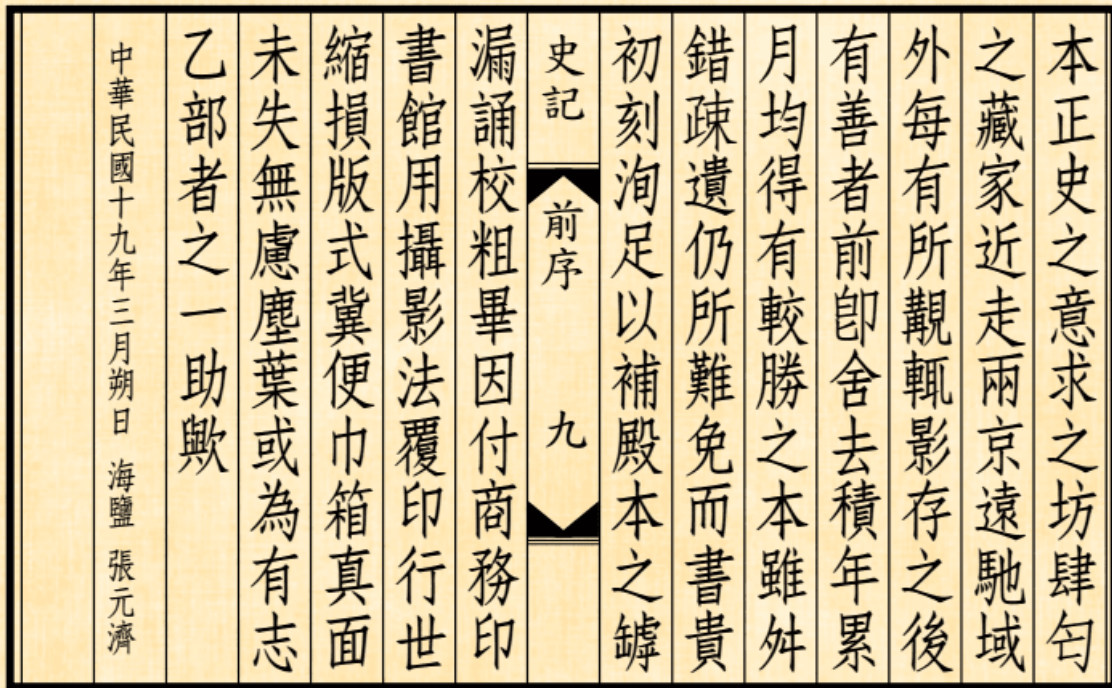 本正史之意求之坊肆匄
之藏家近走兩京遠馳域
外每有所覯輒影存之後
有善者前卽舍去積年累
月均得有較勝之本雖舛
錯疎遺仍所難免而書貴
初刻洵足以補殿本之罅
史記 前序 九
漏誦校粗畢因付商務印
書館用攝影法覆印行世
縮損版式冀便巾箱真面
未失無慮塵葉或為有志
乙部者之一助歟
中華民國十九年三月朔日 海鹽 張元濟